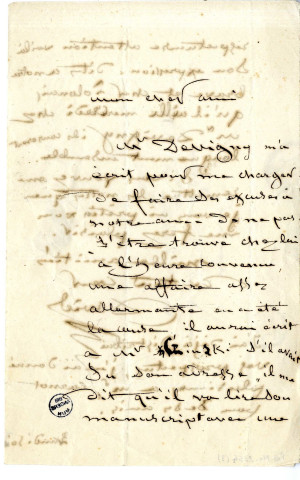 mon cher ami
Mr Devigny m'a
écrit pour me charger
de faire des excuses à
notre amie de ne pas
s'être trouvé chez lui
à l'heure convenue,
une affaire assez
allarmante en a été
la cause il aurai écrit
à Mr s'il avait
su son adresse il me
dit qu'il va lire son
manuscript avec une